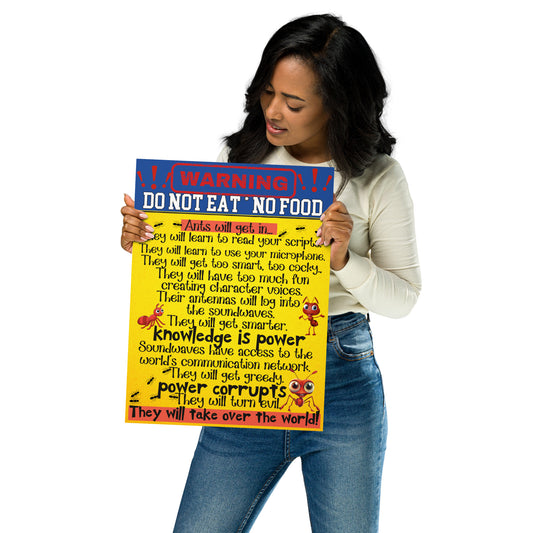 !! WARNING !!
DO NOT EAT * NO FOOD
Ants will get in...
They will learn to read your scripts.
They will learn to use your microphone.
They will get too smart, too cocky..
They will have too much fun
creating character voices.
Their antennas will log into
the soundwaves.
They will get smarter.
knowledge is power
Soundwaves have access to the
world's communication network.
They will get greedy.
power corrupts
They will turn evil.
They will take over the world!